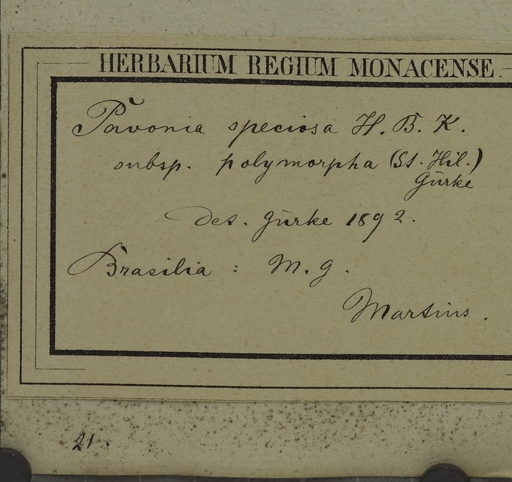 HERBARIUM REGIUM MONACENSE.
Pavonia speciosa H. B. K.
subsp. polymorpha (St. Hil.)
Gürke
Det. Gürke 1892.
Brasilia : M. g.
Martius.
21.